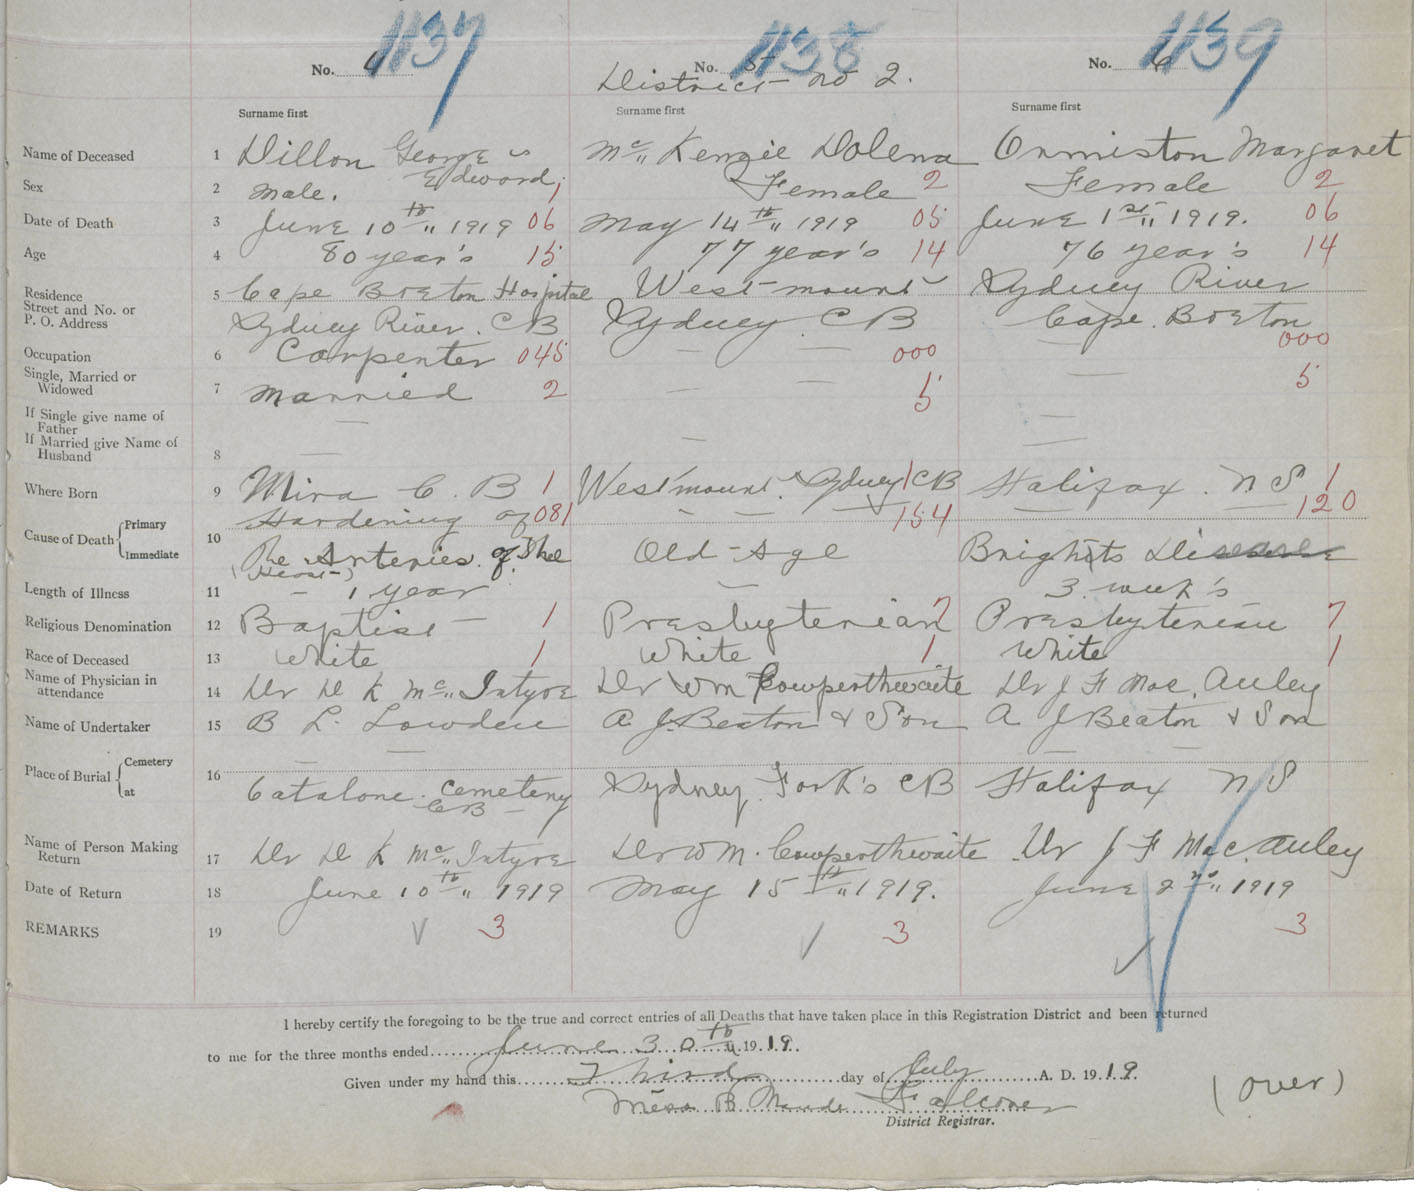 1137 1138 1139
No. 4 No. 5 No. 6
District no 2.
Surname first Surname first Surname first
Name of Deceased 1 Dillon George Edward Mc„ Kenzie Dolena Ormiston Margaret
Sex 2 male. 1 Female 2 Female 2
Date of Death 3 June 10th„ 1919 06 May 14th„ 1919 05 June 1st„ 1919. 06
Age 4 80 year's 15 77 year's 14 76 year's 14
Residence 5 Cape Breton Hospital Westmount Sydney River
Street and No. or
P. O. Address Sydney River. CB Sydney. CB Cape. Breton
Occupation 6 Carpenter 045 — — 000 — 000
Single, Married or
Widowed 7 married 2 — — 5 — 5
If Single give name of
Father — —
If Married give Name of
Husband 8 — — —
Where Born 9 Mira C. B 1 Westmount. Sydney CB 1 Halifax. N S 1
Cause of Death { Primary Hardening of 081 — — 154 — — 120
Immediate 10 The Arteries of The Old-Age Brights Disease
(Heart)
Length of Illness 11 — 1 year — 3. week's
Religious Denomination 12 Baptist 1 Presbyterian 7 Presbyterian 7
Race of Deceased 13 White 1 White 1 White 1
Name of Physician in
attendance 14 Dr D K Mc„ Intyre Dr Wm Cowperthwaite Dr J F Mac. Auley
Name of Undertaker 15 B L. Lowden A. J. Beaton & Son A J Beaton & Son
Place of Burial { Cemetery — — — —
at 16 Catalone. Cemetery CB — Sydney. Fork's CB Halifax N S
Name of Person Making
Return 17 Dr D K Mc„ Intyre Dr W M. Cowperthwaite Dr J F Mac. Auley
Date of Return 18 June 10th„ 1919 May 15th„ 1919. June 2nd„ 1919
REMARKS 19 3 3 3
I hereby certify the foregoing to be the true and correct entries of all Deaths that have taken place in this Registration District and been returned
to me for the three months ended June 30th„ 1919.
Given under my hand this Third day of July A. D. 1919.
(over)
B Maude Falconer
District Registrar.